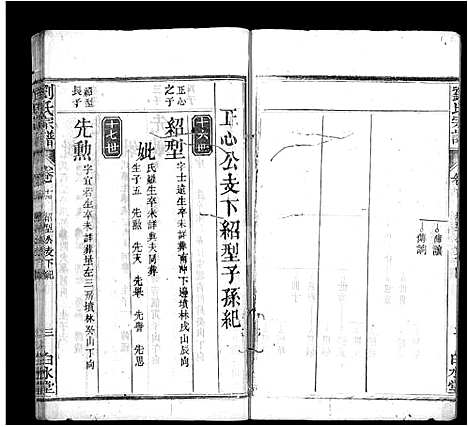 傳讀
傳詞
白水堂
正心公支下紹型子孫紀
十六世
正心之子
紹型
字士遠生卒未詳葬南沖下邊墳林戌山辰向
妣
氏羅生卒未詳與夫同葬
生子五 先勲 先天 先舉 先譽 先思
十七世
紹型長子
先勲
字宜若生卒未詳葬屋左三房墳林癸山丁向
劉氏宗譜
紹型公支下紀
三
白水堂